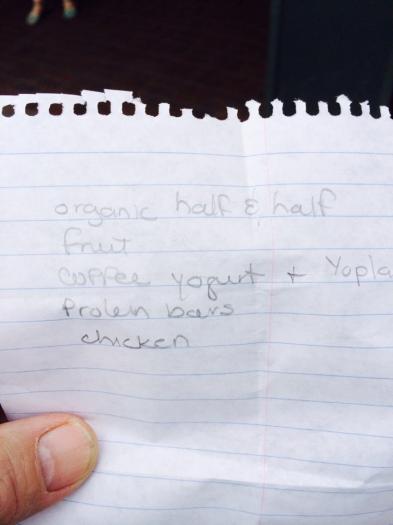 organic half & half
fruit
coffee yogurt + Yopla
Prolen bars
chicken